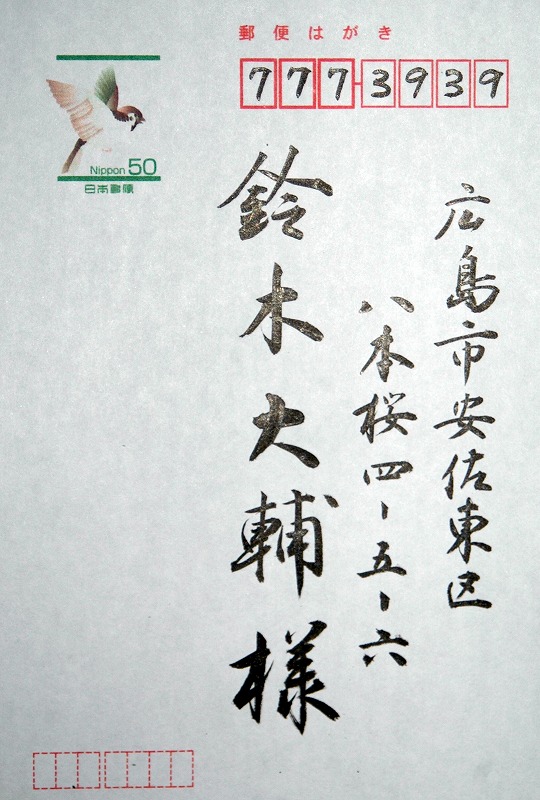 郵便はがき
777-3939
Nippon 50
日本郵便
広島市安佐東区
八本桜四-五-六
鈴木大輔様